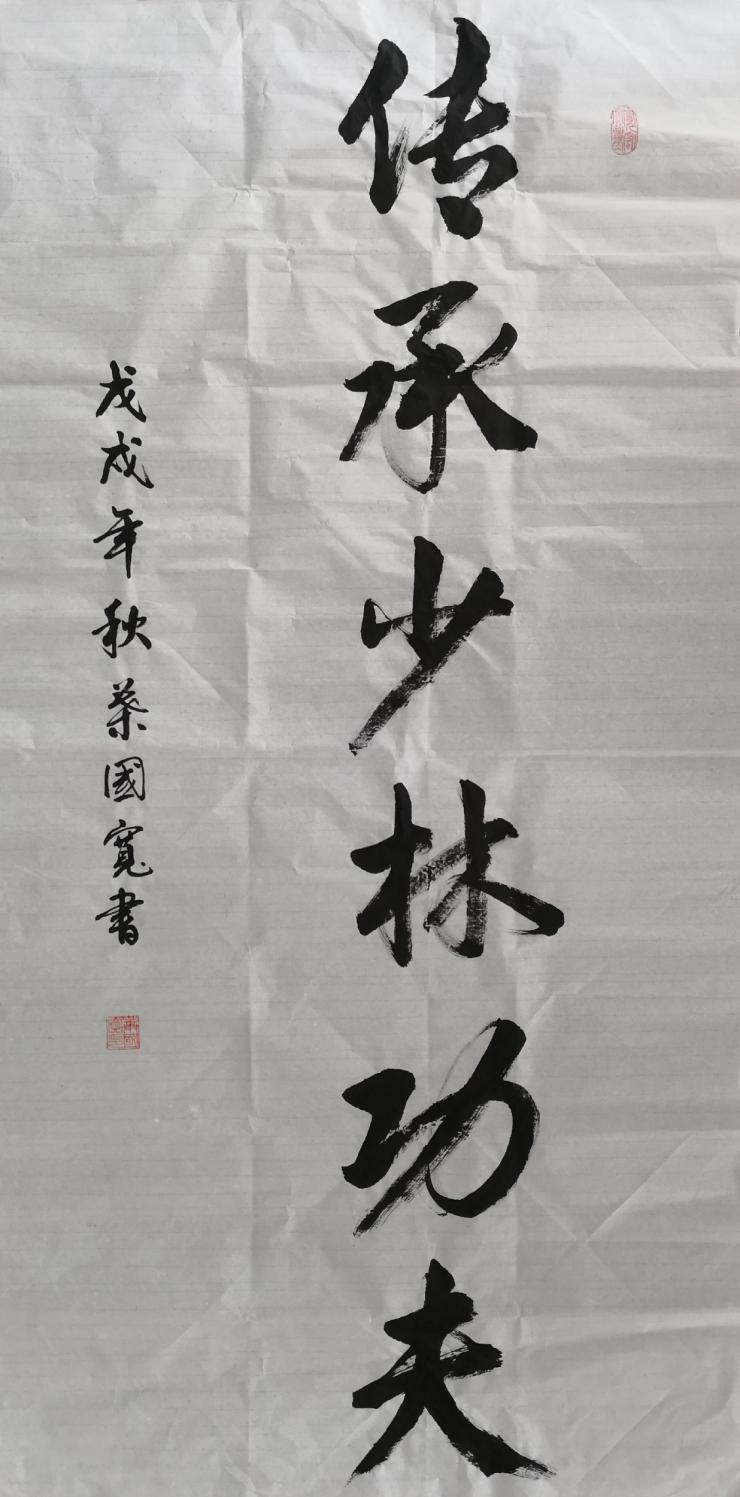 传承少林功夫
戊戌年秋葉國寬書